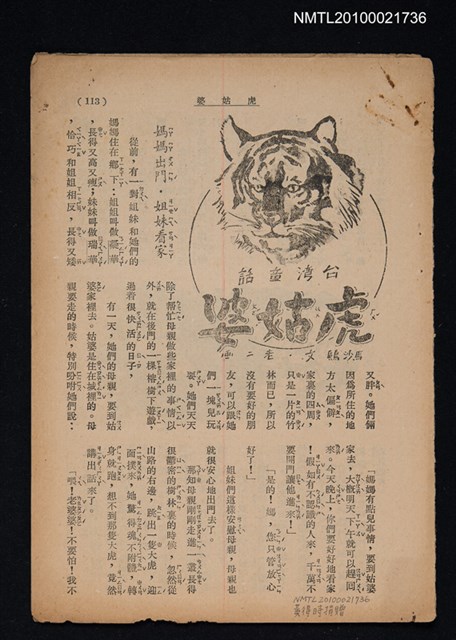 NMTL20100021736
虎姑婆
(113)
台湾童話
虎姑婆
媽媽出門,姐妹看家
從前,有一對姐妹和她們的
媽媽住在鄉下:姐姐叫做華
,長得又高又瘦;妹妹叫做瑞華
,恰巧和姐姐相反,長得又矮
又胖。她們倆
因爲所住的地
方太偏僻,
家裏的四周,
只是一片的竹
林而已,所以
沒有要好的朋
友,可以跟她
們一塊兒玩
耍。她們天天
除了幫忙母親做些家裡的事情以
外,就在後門的一棵榕樹下遊戲,
過着很快活的日子,
有一天,她們的母親,要到姑
婆家裡去。姑婆是住在城裡的。母
親要走的時候,特別吩咐她們說:
「媽媽有點兒事情,要到姑婆
家去,大概明天下午就可以趕囘
來。今天晚上,你們要好好地看家
!假如有不認識的人來,千萬不
要開門讓他進來!」
「是的!媽,您只管放心
好了!」
姐妹們這樣安慰母親,母親也
就很安心地出門去了。
那知母親剛剛走進一叢長得
很密的樹林裏的時候,忽然從
山路的右邊,跳出一隻大虎,迎
面撲來,她驚得魂不附體,轉
身就跑,想不到那隻大虎,竟然
講出話來了。
「喂!老婆婆!不要怕!我不
NMTL20100021736
黃得時捐贈